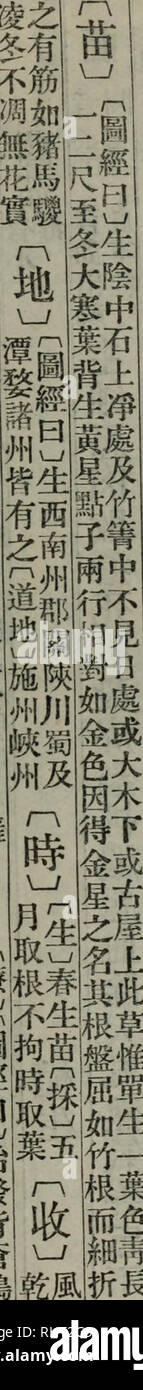 〔苗〕〔圖經曰〕生陰中石上淨處及竹箐中不見日處或大木下或古屋上此草惟單生一葉色青長
一二尺至冬大寒葉背生黃星點子兩行相對如金色因得金星之名其根盤屈如竹根而細折
之有筋如豬馬騣
凌冬不凋無花實
〔地〕〔圖經曰〕生西南州郡關陝川蜀及
潭婺諸州皆有之〔道地〕施州峽州
〔時〕〔生〕春生苗〔採〕五
月取根不拘時取葉
〔收〕風
乾
alamy
www.alamy.com